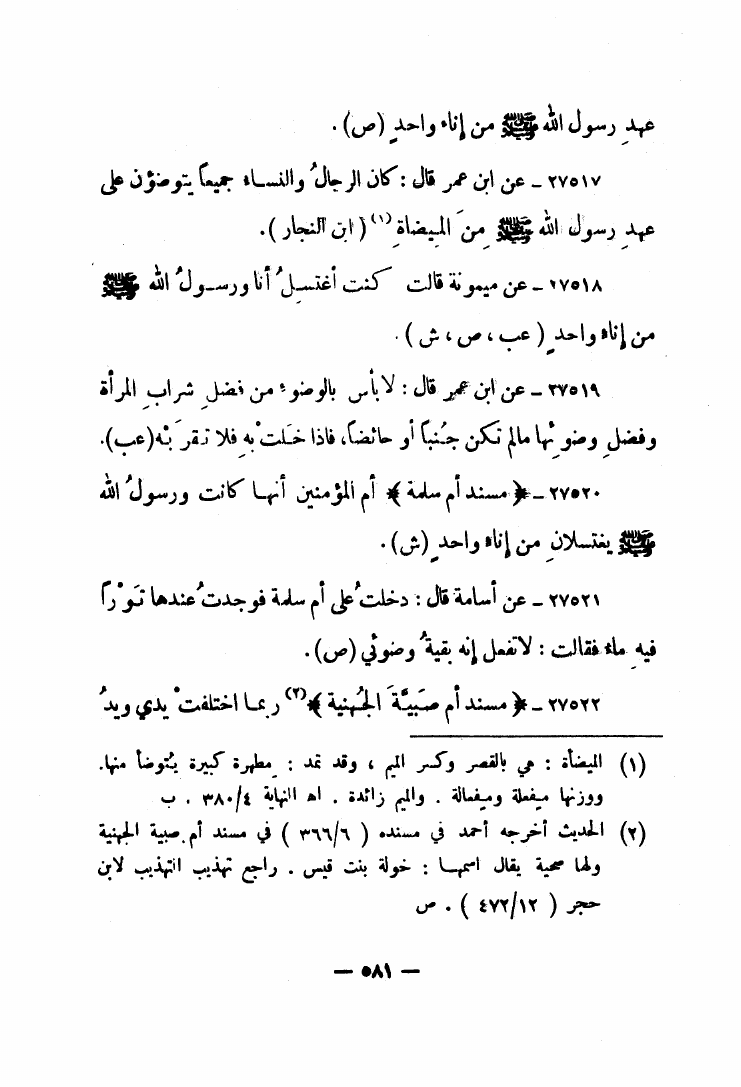 عهدِ رسول الله ﷺ من إناء واحدٍ (ص) .
٢٧٥١٧ ـ عن ابن عمر قال : كان الرجالُ والنساء جميعاً يتوضؤن على
عهدِ رسول الله ﷺ مِنَ المِيضاةِ (١) ( ابن النجار ) .
٢٧٥١٨ ـ عن ميمونة قالت كنت أغتسِلُ أنا ورسولُ الله ﷺ
من إناء واحدٍ ( عب ، ص ، ش ) .
٢٧٥١٩ ـ عن ابن عمر قال : لا بأس بالوضوء من فضلِ شرابِ المرأة
وفضلِ وضوئِها مالم تكن جُنباً أو حائضاً، فاذا خلَتْ بهِ فلا تقرَبْه(عب).
٢٧٥٢٠ ـ ﴿ مسند أم سلمة ﴾ أم المؤمنين أنها كانت ورسولُ الله
ﷺ يغتسلانِ من إناء واحدٍ (ش) .
٢٧٥٢١ ـ عن أسامة قال : دخلتُ على أم سلمة فوجدتُ عندها تَوْراً
فيهِ ماء فقالت : لاتفعل إنه بقيةُ وضوئي (ص) .
٢٧٥٢٢ ـ ﴿ مسند أم صُبَيَّةَ الجُهنية ﴾(٢) ربما اختلفتْ يدي ويدُ
(١) الميضأة : هي بالقصر وكسر الميم ، وقد تمد : مِطهرة كبيرة يُتوضأ منها.
ووزنها مِفعلة ومِفعالة . والميم زائدة . اه النهاية ٣٨٠/٤ . ب
(٢) الحديث أخرجه أحمد في مسنده ( ٣٦٦/٦ ) في مسند أم صبية الجهنية
ولها صحبة يقال اسمها : خولة بنت قيس . راجع تهذيب التهذيب لابن
حجر ( ٤٧٢/١٢ ) . ص
— ٥٨١ —